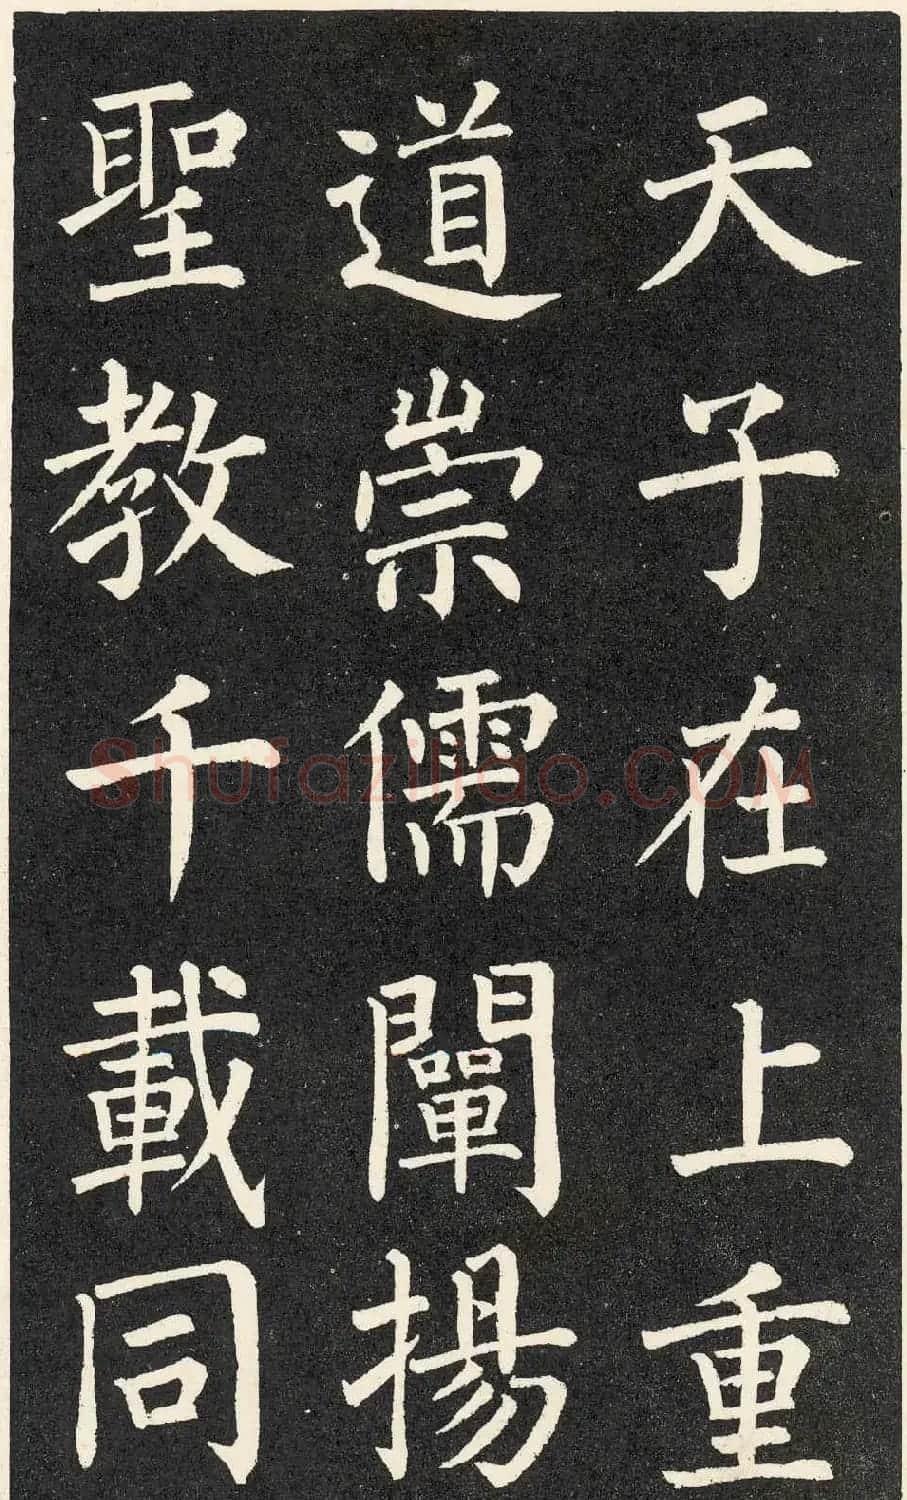 天子在上重
道崇儒闡揚
聖教千載同
Shufaziliao.COM